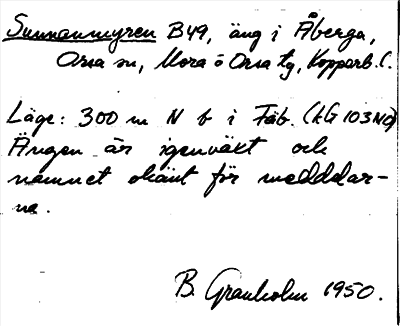 Sunnanmyren B49, äng i Åberga,
Orsa sn, Mora ö Orsa tg, Kopparb. l.
Läge: 300 m N b i Fäb. (kG 103 NO)
Ängen är igenväxt och
namnet okänt för meddelar-
na.
B. Granholm 1950.